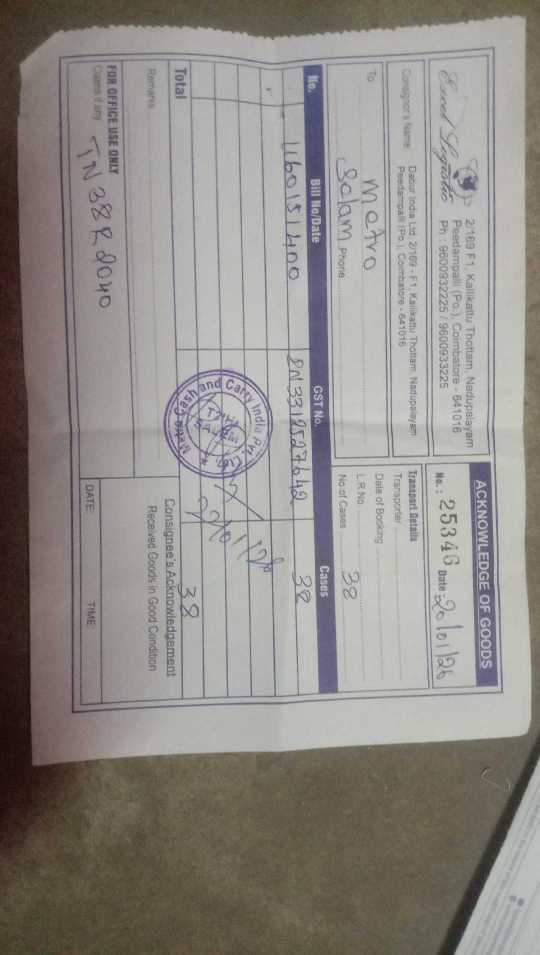 ACKNOWLEDGE OF GOODS
Excel Logistic
2/169 F1, Kallikattu Thottam, Nadupalayam
Peedampalli (Po.), Coimbatore - 641016
Ph : 9600932225 / 9600933225
No. : 25346 Date 20/01/26
Consignor's Name: Dabur India Ltd. 2/169 - F1, Kallikattu Thottam, Nadupalayam
Peedampalli (Po.), Coimbatore - 641016
To
Metro
Salam Phone
Transport Details
Transporter
Date of Booking
L.R.No.
No.of Cases 38
No. Bill No/Date GST No. Cases
1160151400 DN3319527642 38
Metro Cash and Carry India Pvt
22/01/26
Total 38
Remarks
Consignee's Acknowledgement
Received Goods in Good Condition
FOR OFFICE USE ONLY
Claims if any TN38R2040
DATE: TIME: